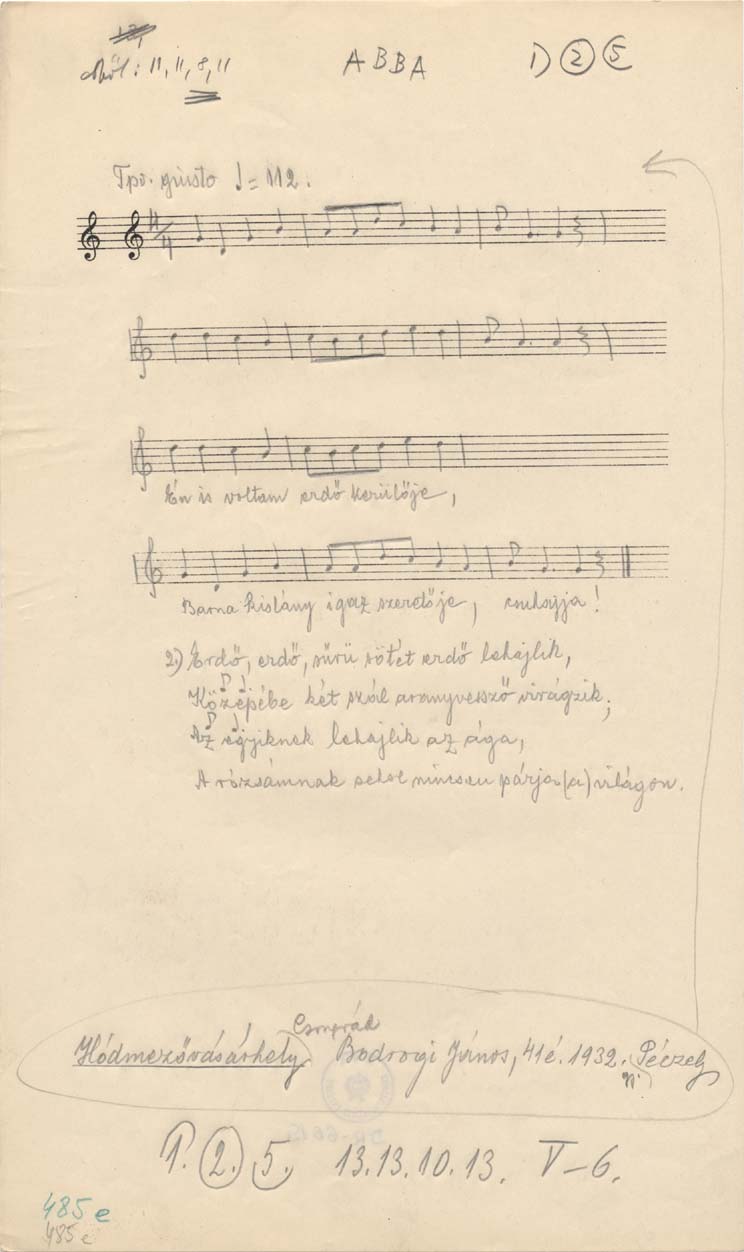 11, 11, 8, 11
ABBA
1) 2 5
Tpo. giusto ♩= 112.
4/4
Én is voltam erdő kerülője,
Barna kislány igaz szeretője, csuhajja!
2.) Erdő, erdő, sűrü sötét erdő lehajlik,
Közepébe két szál aranyvessző virágzik;
Az egyiknek lehajlik az ága,
A rózsámnak sehol nincsen párja (a) világon.
Hódmezővásárhely Bodrogi János, 41é. 1932. Péczely
1. 2. 5. 13.13.10.13. V–6.
485 e
485 e